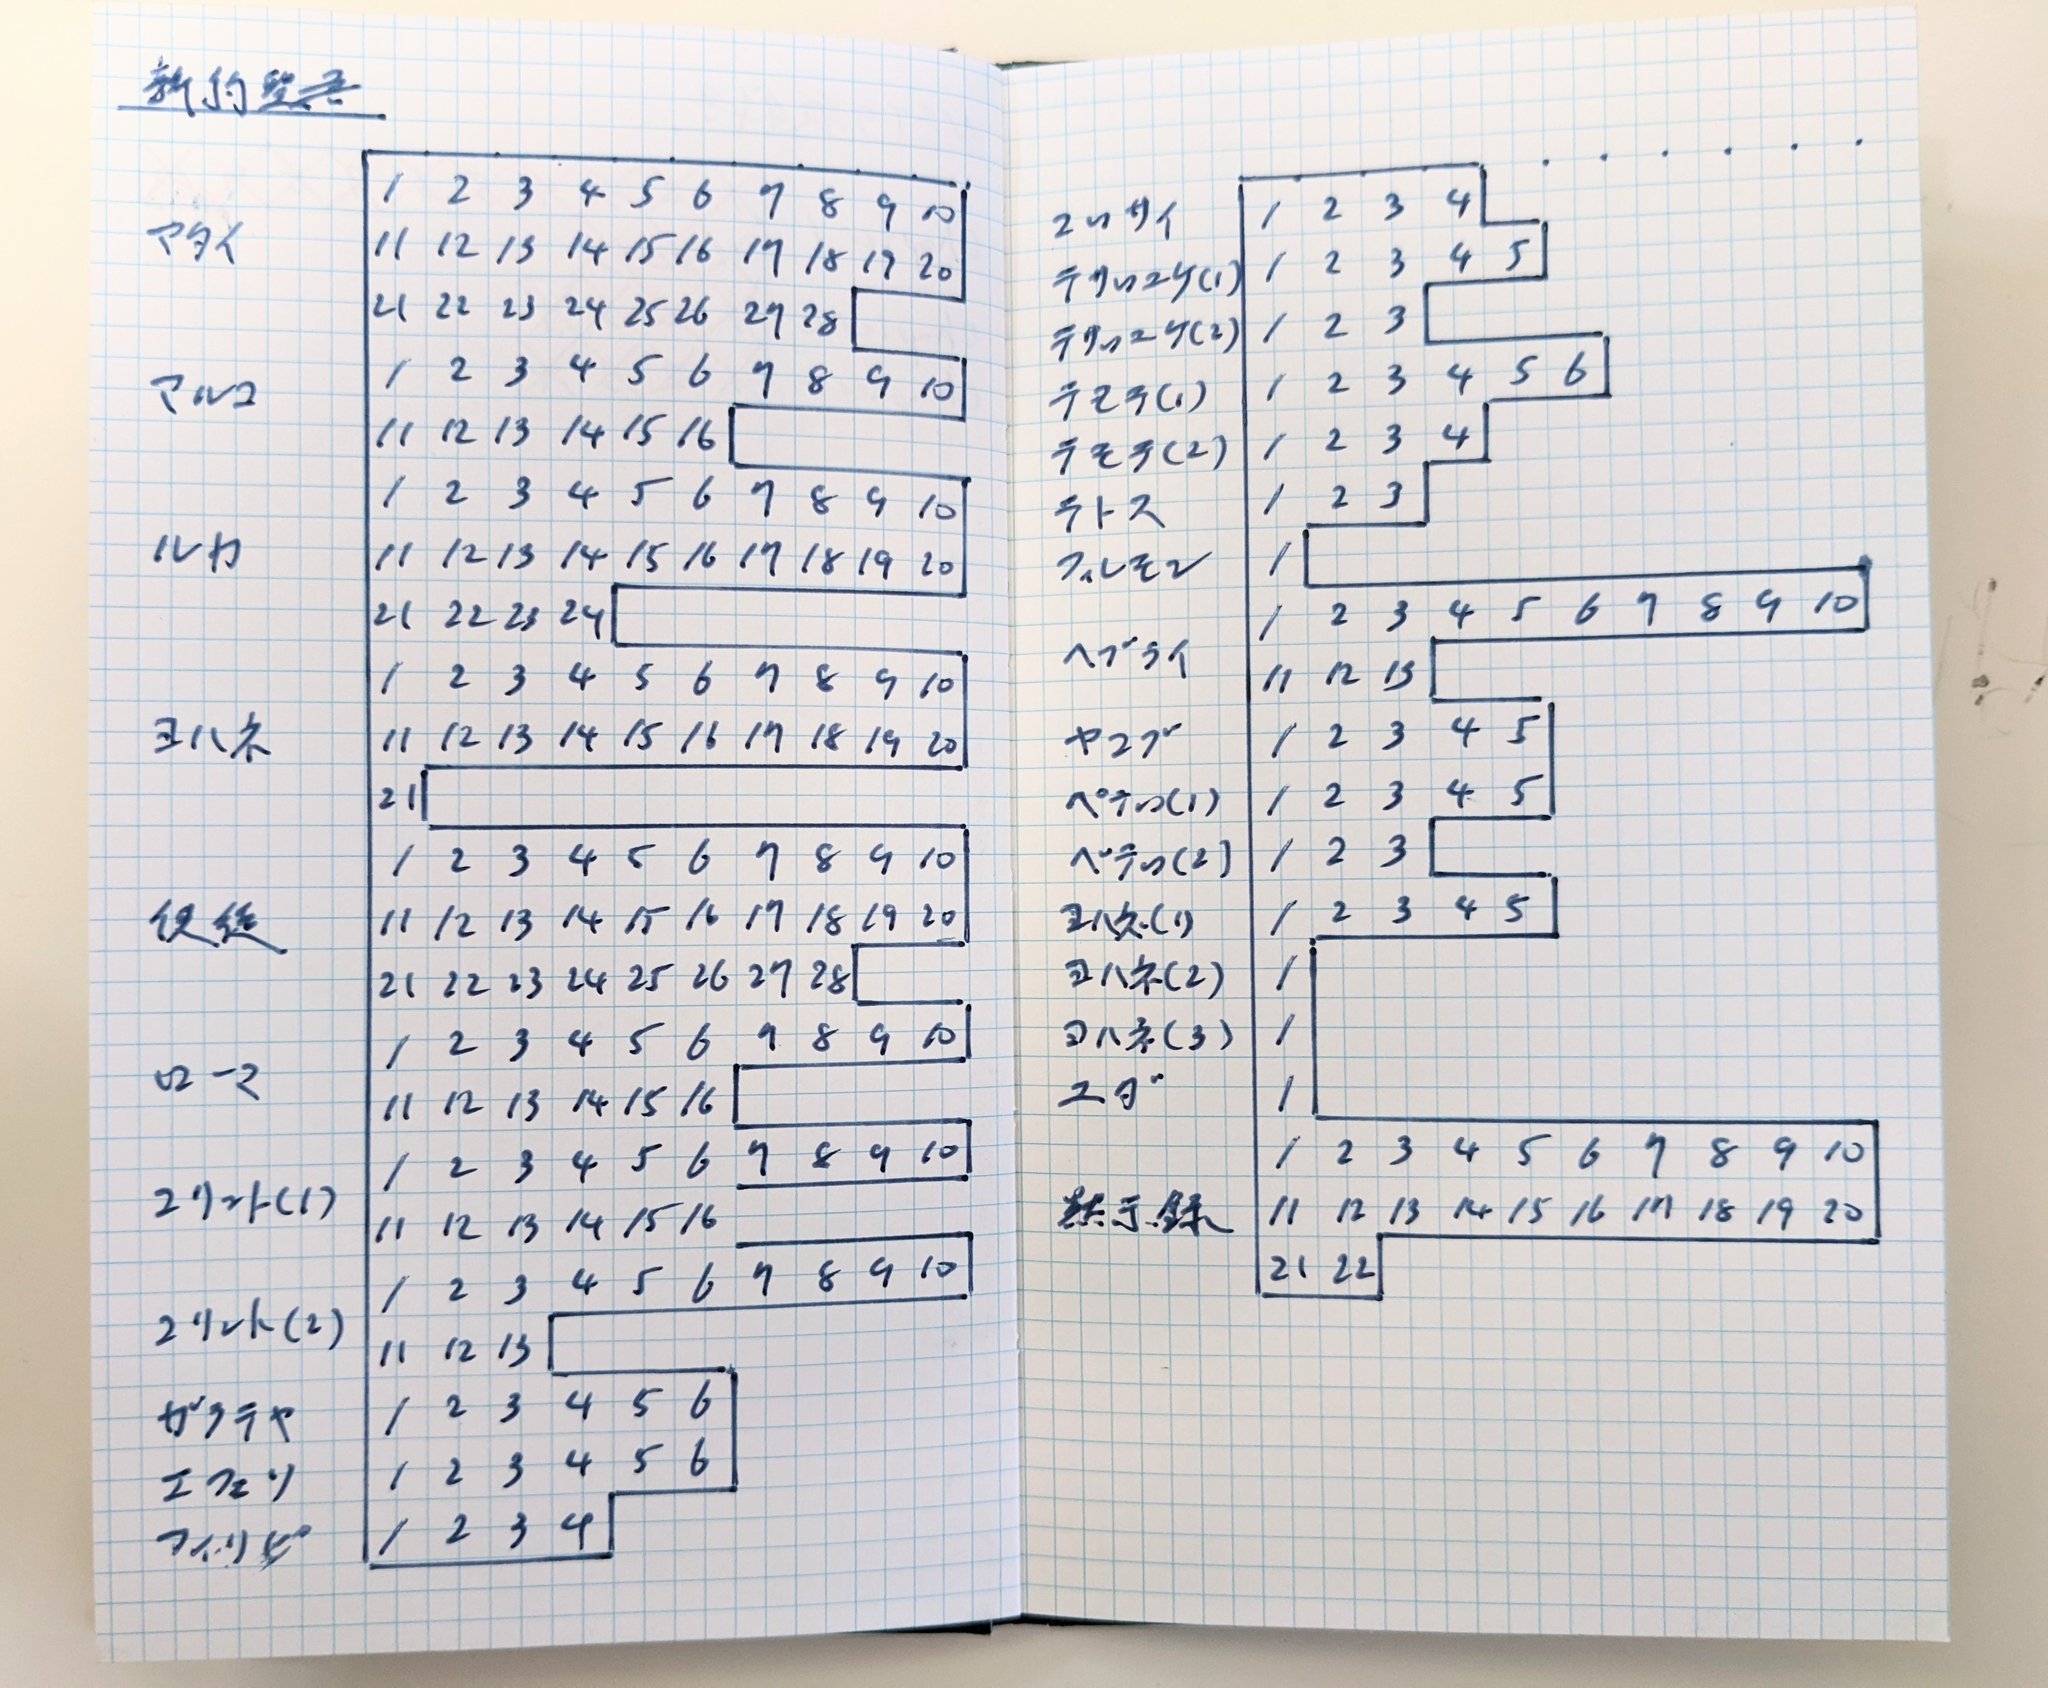 新約聖書
1 2 3 4 5 6 7 8 9 10
マタイ 11 12 13 14 15 16 17 18 19 20
21 22 23 24 25 26 27 28
マルコ 1 2 3 4 5 6 7 8 9 10
11 12 13 14 15 16
1 2 3 4 5 6 7 8 9 10
ルカ 11 12 13 14 15 16 17 18 19 20
21 22 23 24
1 2 3 4 5 6 7 8 9 10
ヨハネ 11 12 13 14 15 16 17 18 19 20
21
1 2 3 4 5 6 7 8 9 10
使徒 11 12 13 14 15 16 17 18 19 20
21 22 23 24 25 26 27 28
1 2 3 4 5 6 7 8 9 10
ローマ 11 12 13 14 15 16
1 2 3 4 5 6 7 8 9 10
コリント(1) 11 12 13 14 15 16
1 2 3 4 5 6 7 8 9 10
コリント(2) 11 12 13
ガラテヤ 1 2 3 4 5 6
エフェソ 1 2 3 4 5 6
フィリピ 1 2 3 4
コロサイ 1 2 3 4
テサロニケ(1) 1 2 3 4 5
テサロニケ(2) 1 2 3
テモテ(1) 1 2 3 4 5 6
テモテ(2) 1 2 3 4
テトス 1 2 3
フィレモン 1
1 2 3 4 5 6 7 8 9 10
ヘブライ 11 12 13
ヤコブ 1 2 3 4 5
ペテロ(1) 1 2 3 4 5
ペテロ(2) 1 2 3
ヨハネ(1) 1 2 3 4 5
ヨハネ(2) 1
ヨハネ(3) 1
ユダ 1
1 2 3 4 5 6 7 8 9 10
黙示録 11 12 13 14 15 16 17 18 19 20
21 22